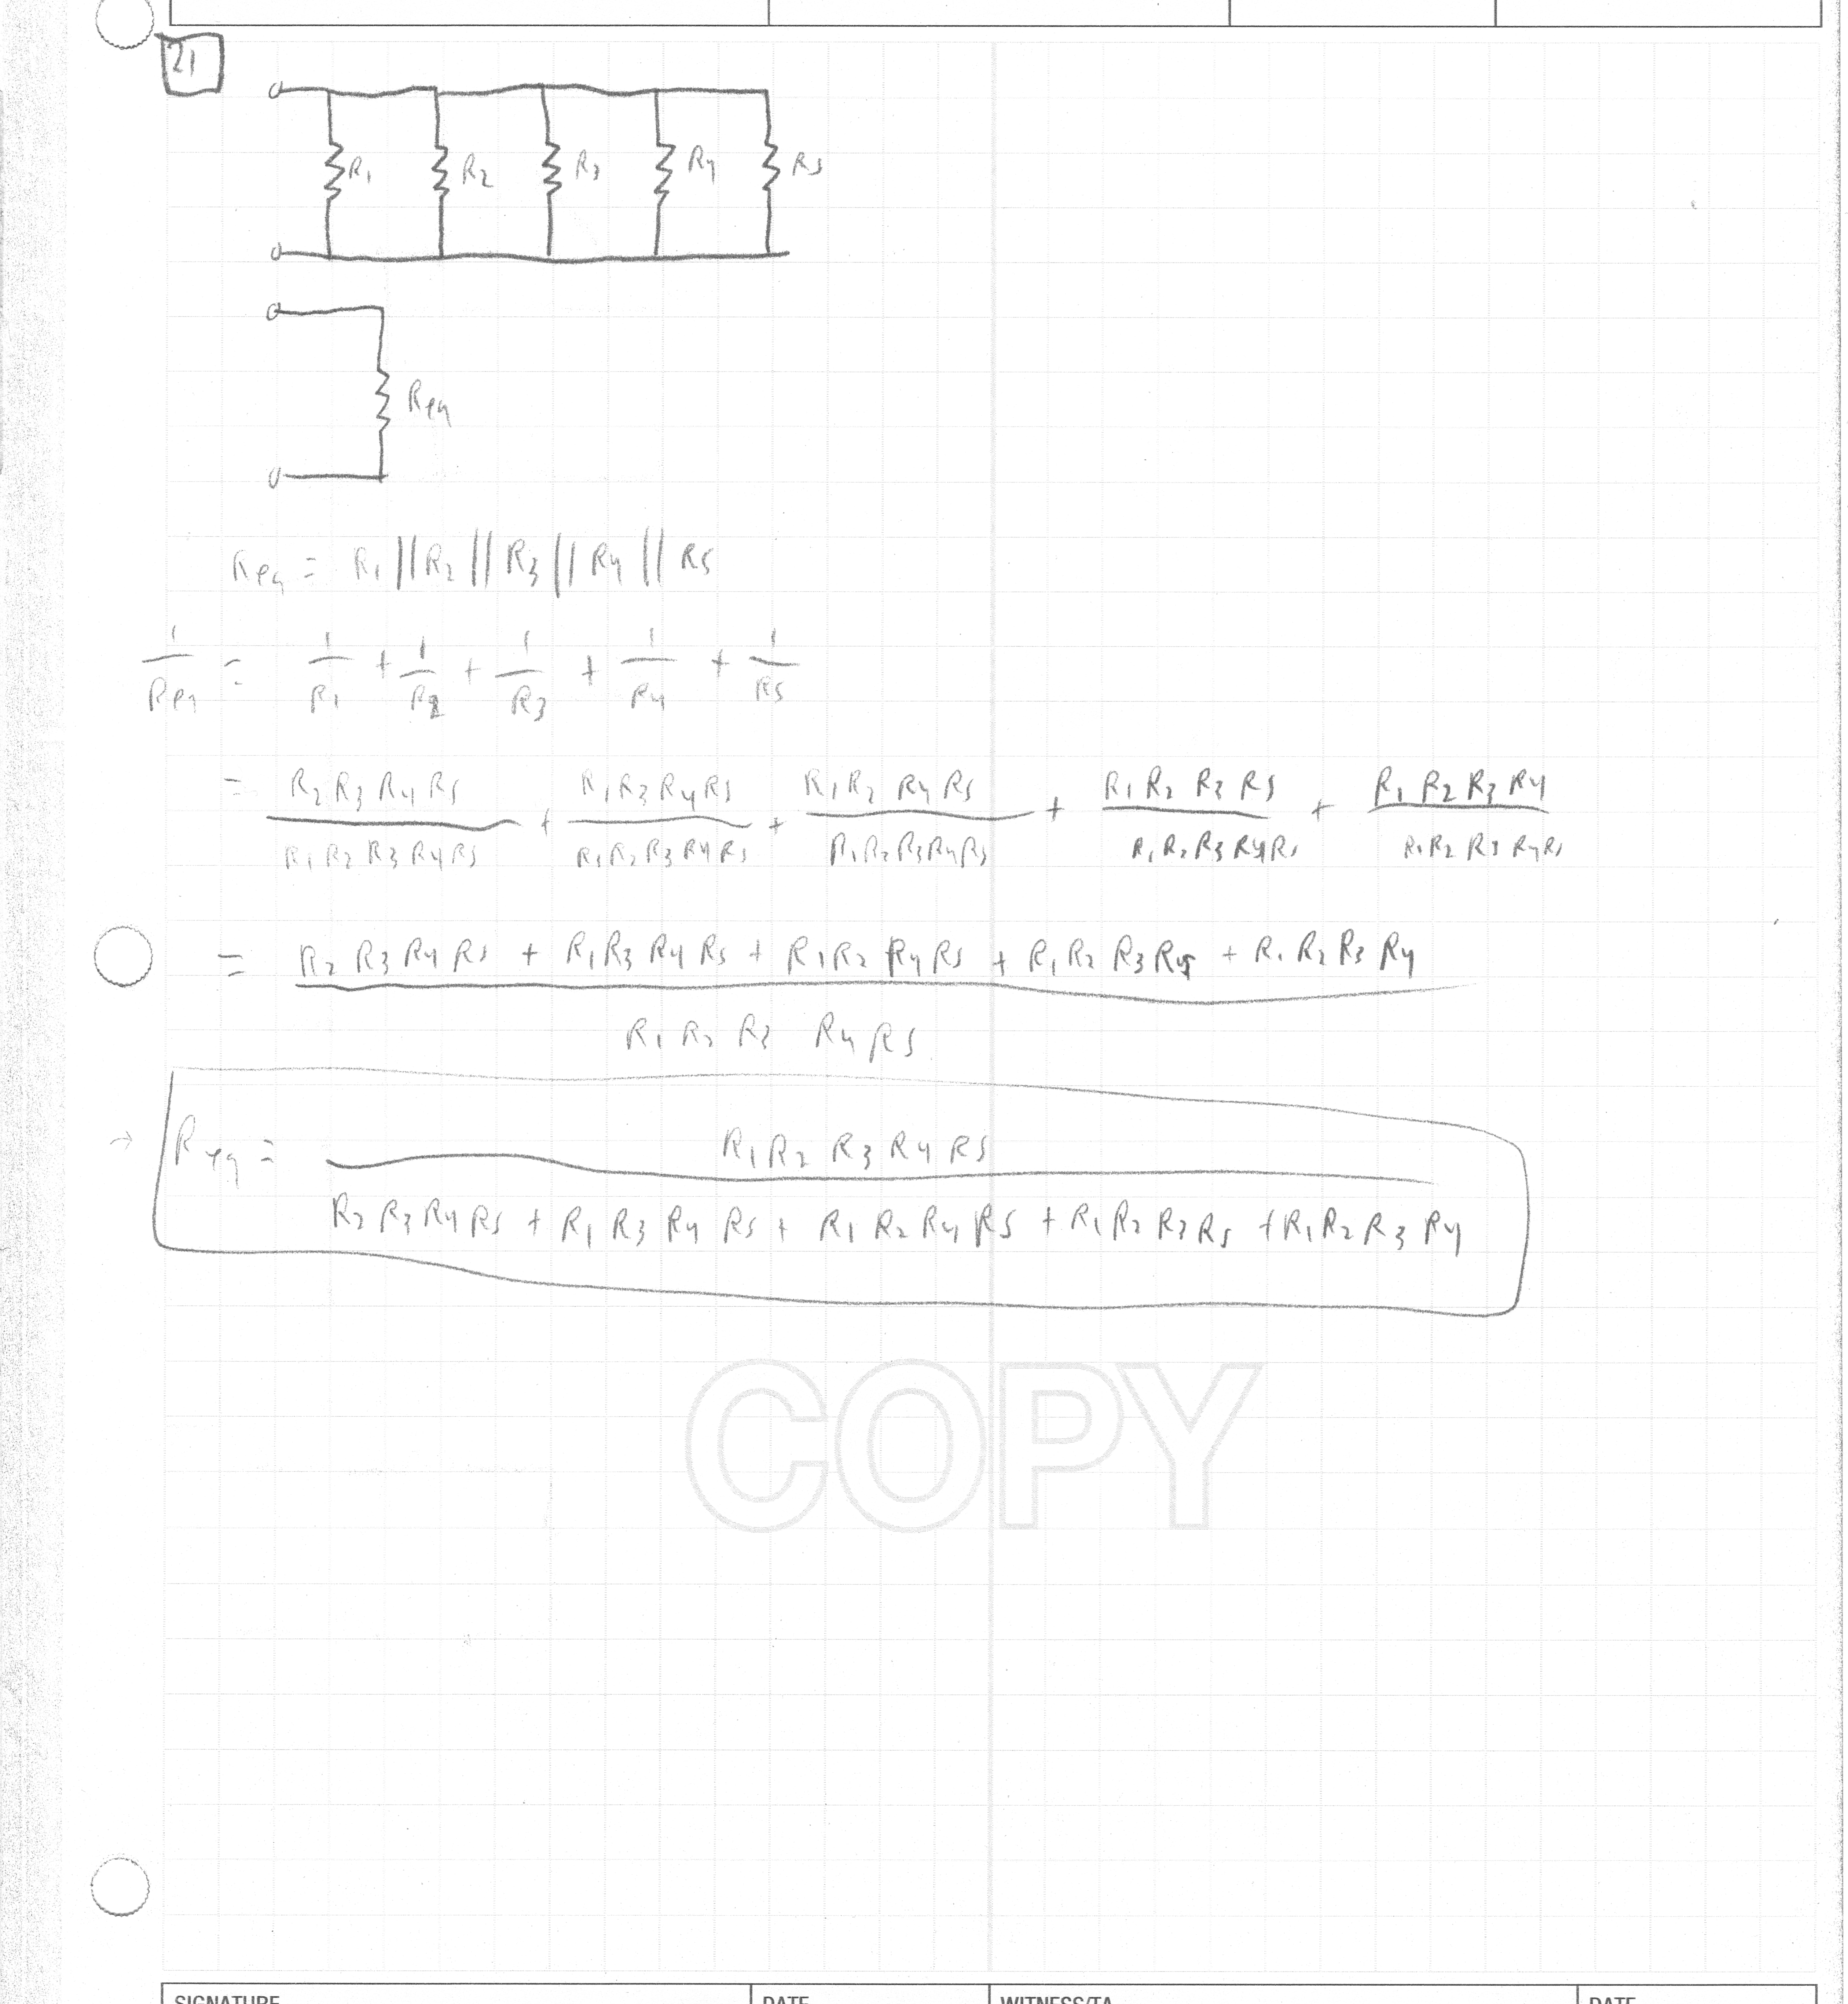 21
R1 R2 R3 R4 R5
Req
Req = R1 || R2 || R3 || R4 || R5
1/Req = 1/R1 + 1/R2 + 1/R3 + 1/R4 + 1/R5
= R2 R3 R4 R5 / R1 R2 R3 R4 R5 + R1 R3 R4 R5 / R1 R2 R3 R4 R5 + R1 R2 R4 R5 / R1 R2 R3 R4 R5 + R1 R2 R3 R5 / R1 R2 R3 R4 R5 + R1 R2 R3 R4 / R1 R2 R3 R4 R5
= R2 R3 R4 R5 + R1 R3 R4 R5 + R1 R2 R4 R5 + R1 R2 R3 R5 + R1 R2 R3 R4
R1 R2 R3 R4 R5
→ Req = R1 R2 R3 R4 R5
R2 R3 R4 R5 + R1 R3 R4 R5 + R1 R2 R4 R5 + R1 R2 R3 R5 + R1 R2 R3 R4
COPY
SIGNATURE DATE WITNESS/TA DATE